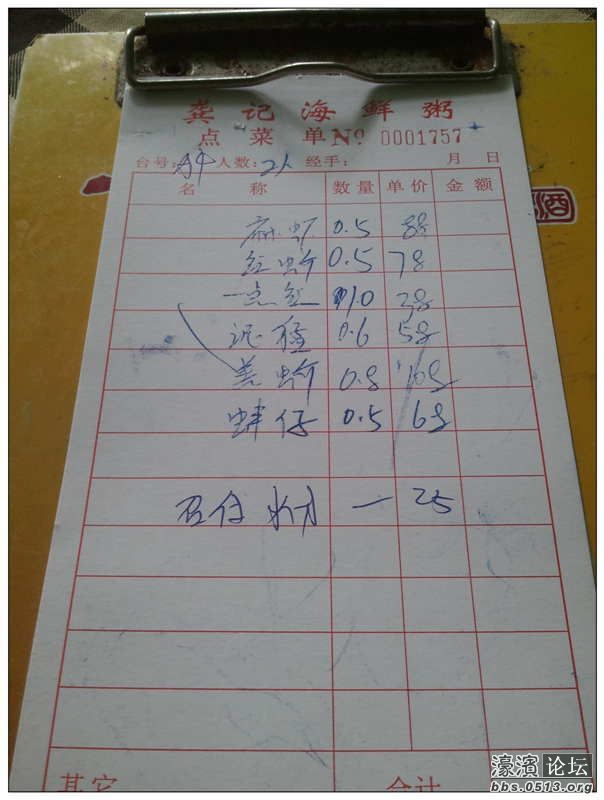 龚记海鲜粥
点菜单 No 0001757
台号: 人数: 2人 经手: 月 日
名称 数量 单价 金额
麻虾 0.5 8元
红蚧 0.5 7元
一点红 1.0 2元
泥猛 0.6 5元
蚧 0.8 10元
蚌仔 0.5 6元
一 25
其它 合计
酒
濠滨论坛
bbs.0513.org